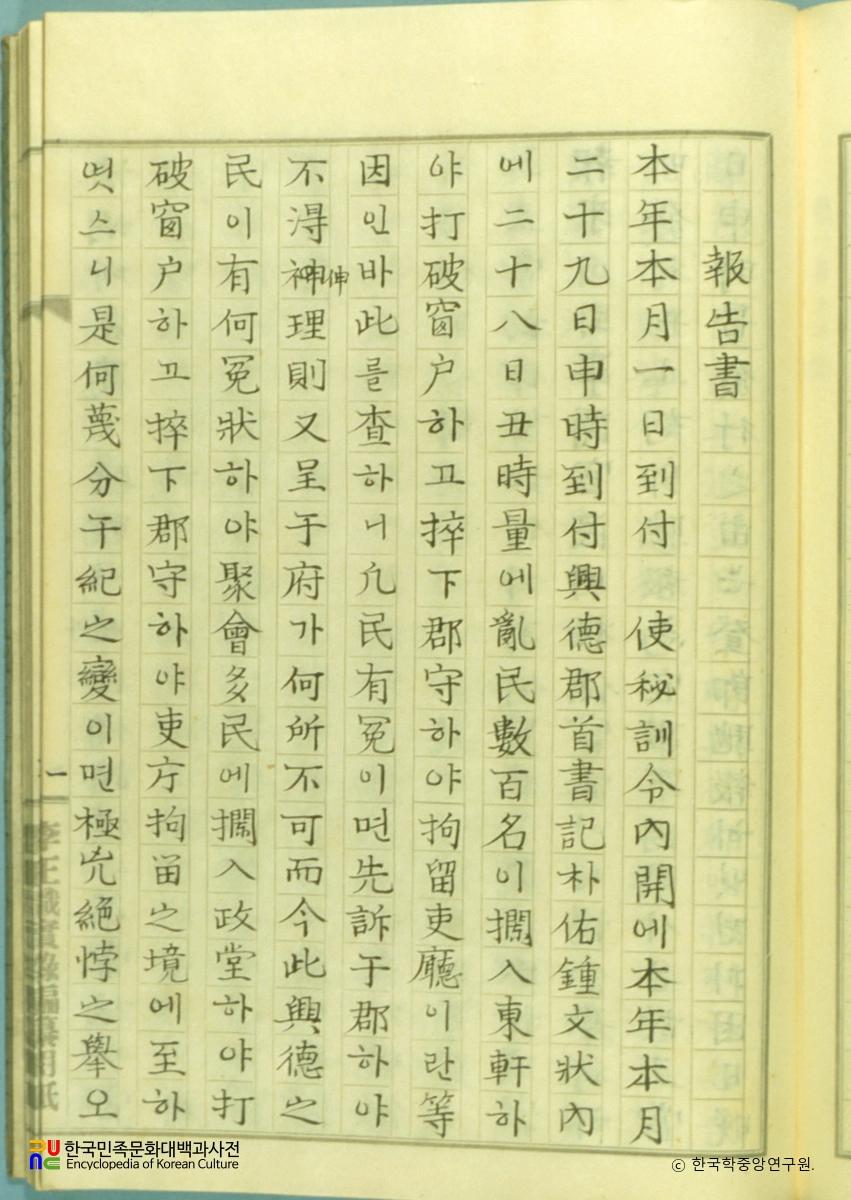 報告書
本年本月一日到付 使秘訓令內開에本年本月
二十九日申時到付興德郡首書記朴佑鍾文狀內
에二十八日丑時量에亂民數百名이攔入東軒하
야打破窗户하고捽下郡守하야拘留吏廳이란等
因인바此를查하니凡民有冤이면先訴于郡하야
不淂神伸理則又呈于府가何所不可而今此興德之
民이有何冤狀하야聚會多民에攔入政堂하야打
破窗户하고捽下郡守하야吏庁拘畄之境에至하
엿스니是何蔑分干紀之變이면極凶絕悖之擧오
一
李王職實錄編纂用紙
한국민족문화대백과사전
Encyclopedia of Korean Culture
ⓒ 한국학중앙연구원.